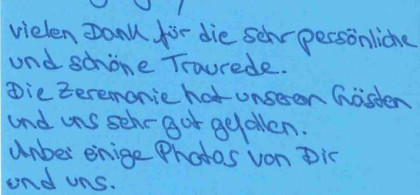 vielen Dank für die sehr persönliche
und schöne Traurede.
Die Zeremonie hat unseren Gästen
und uns sehr gut gefallen.
Anbei einige Photos von Dir
und uns.